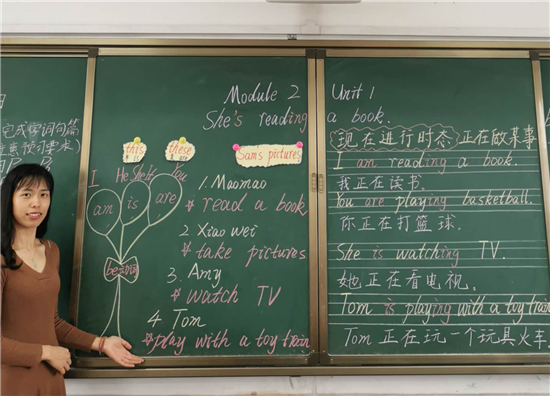 完成 词句篇
Module 2 Unit 1
She's reading a book.
this
these
Sam's pictures
I He She It You
am is are
be动词
1. Maomao
* read a book
2 Xiao wei
* take pictures
3. Amy
* watch TV
4. Tom
* play with a toy train
现在进行时态 正在做某事
I am reading a book.
我正在读书.
You are playing basketball.
你正在打篮球.
She is watching TV.
她正在看电视.
Tom is playing with a toy train
Tom 正在玩一个玩具火车.